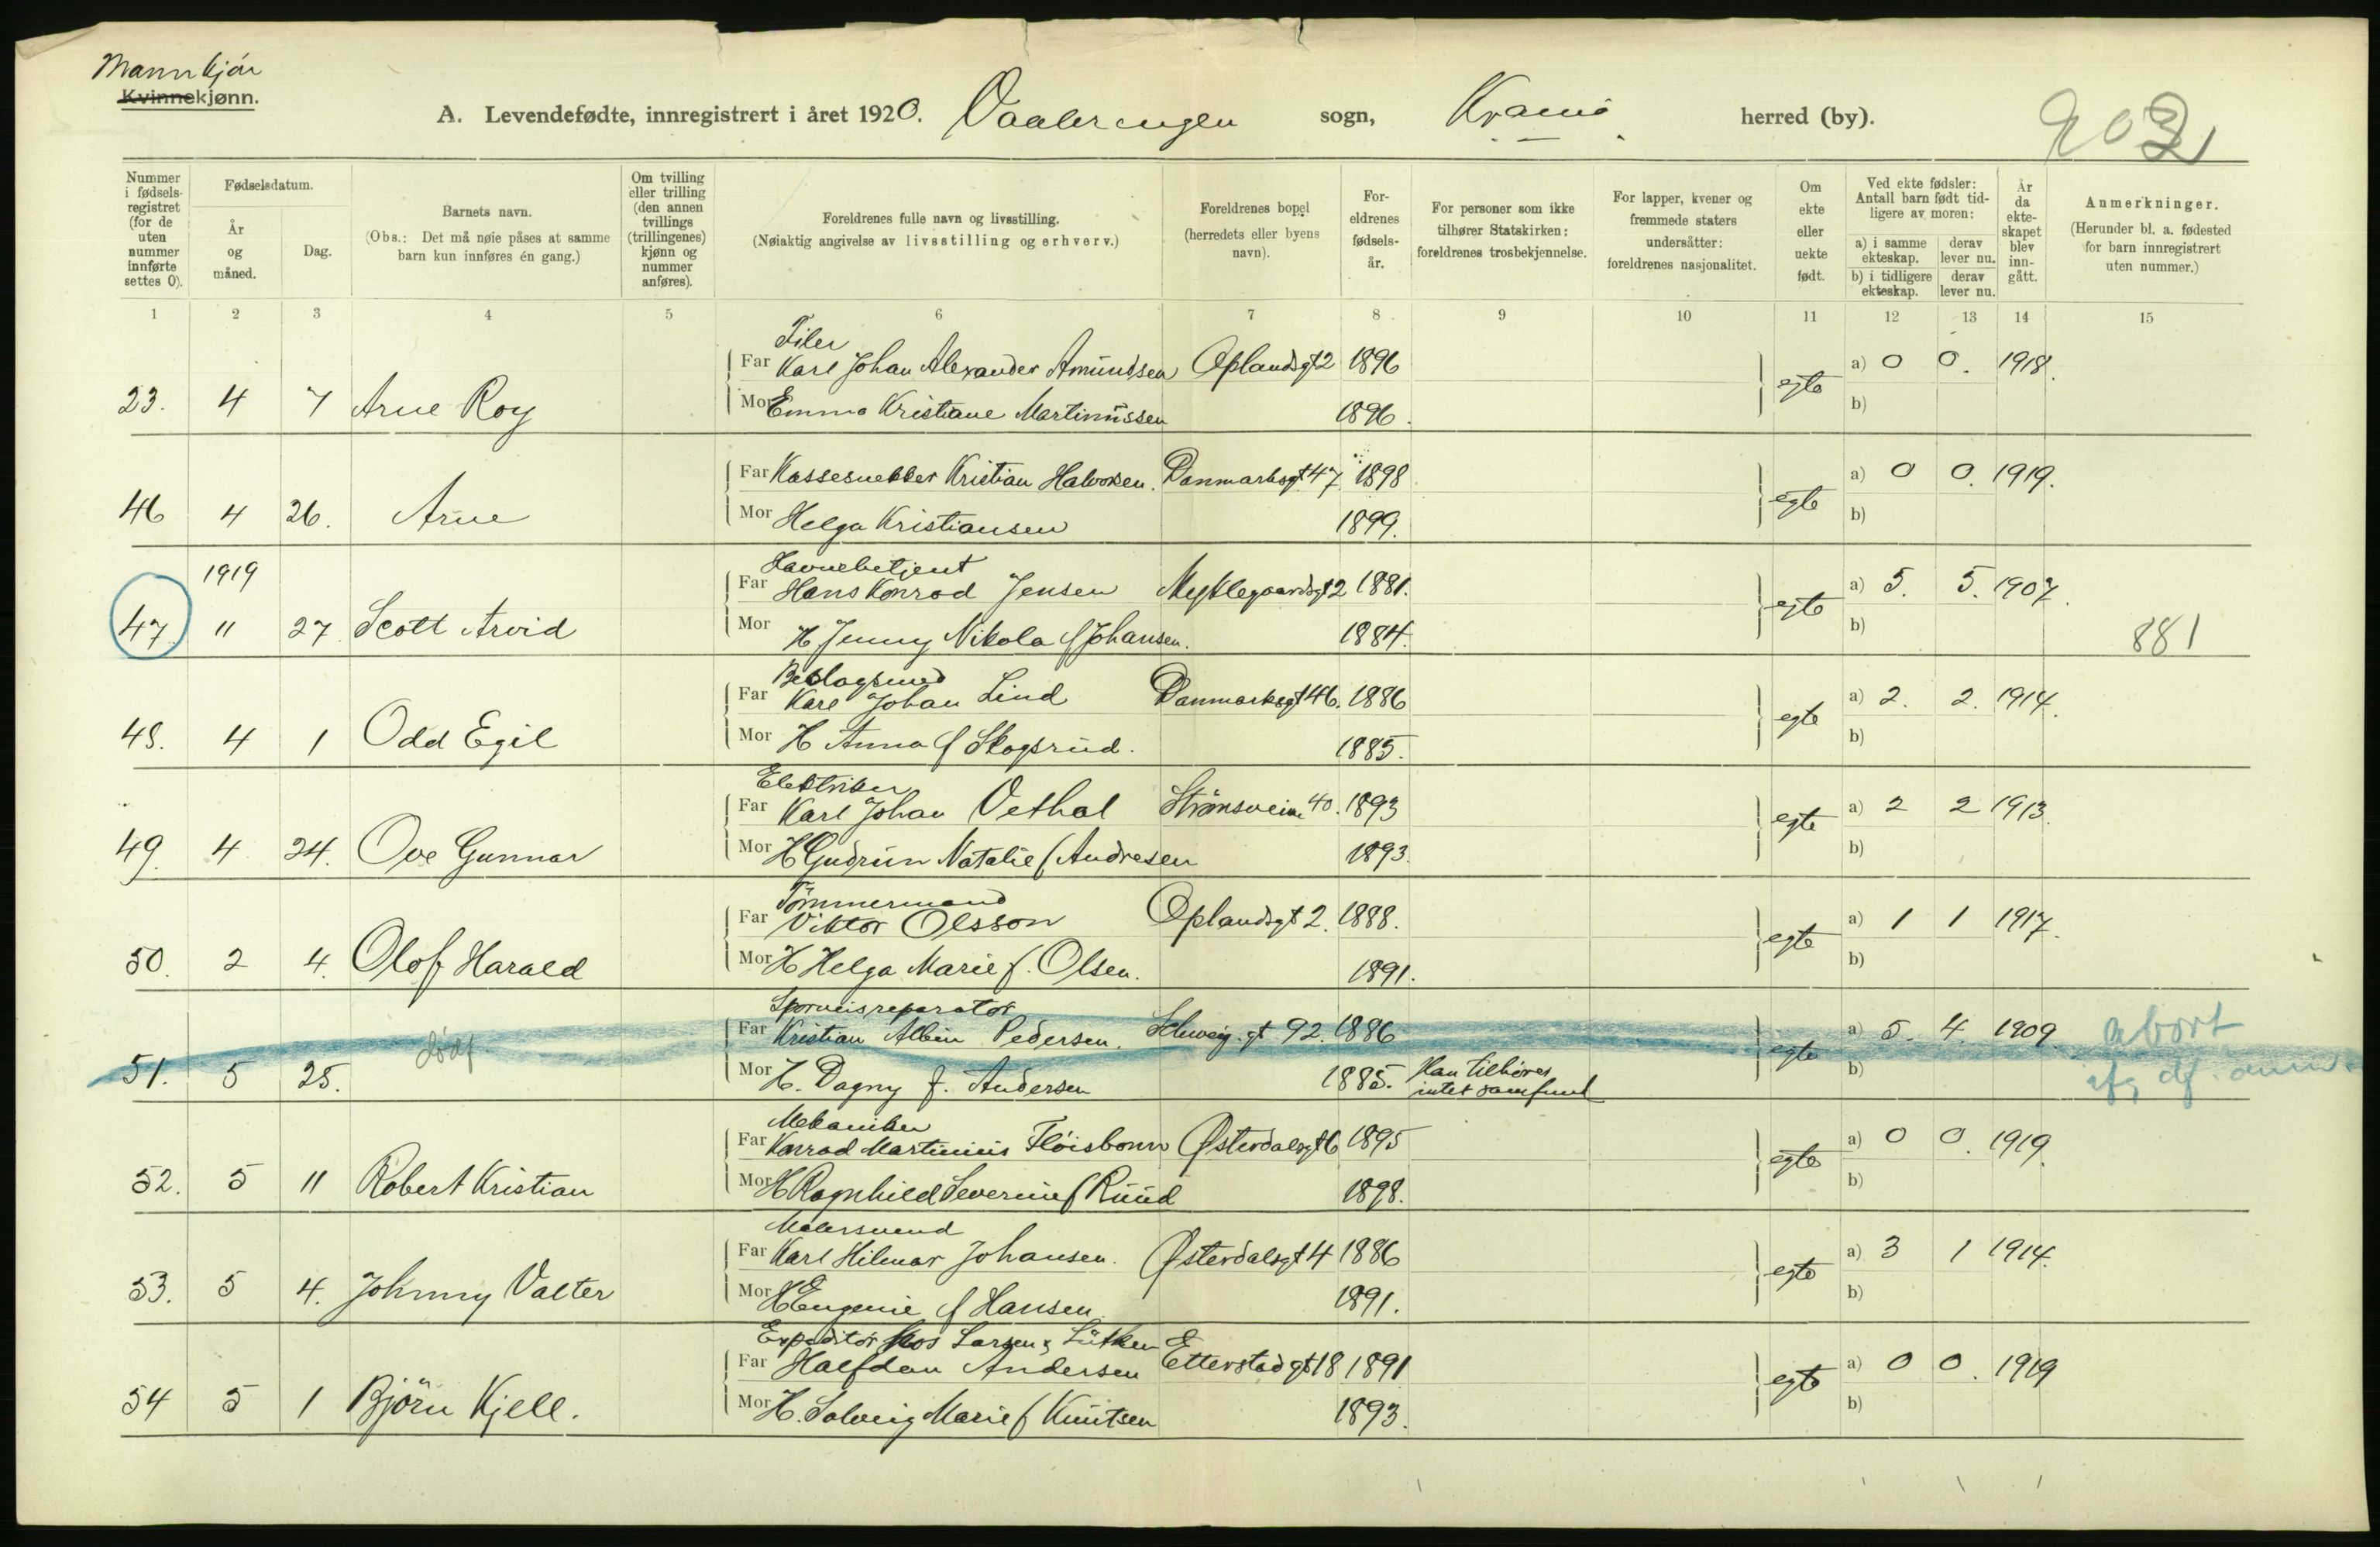 Mannkjøn
Kvinnekjønn.
A. Levendefødte, innregistrert i året 1920. Vaalerengen sogn, Krania herred (by).
Nummer i fødselsregistret (for de uten nummer innførte settes 0).
Fødselsdatum.
År og måned.
Dag.
Barnets navn.
(Obs.: Det må nøie påses at samme barn kun innføres én gang.)
Om tvilling eller trilling (den annen tvillings (trillingenes) kjønn og nummer anføres).
Foreldrenes fulle navn og livsstilling.
(Nøiaktig angivelse av livsstilling og erhverv.)
Foreldrenes bopel (herredets eller byens navn).
Foreldrenes fødselsår.
For personer som ikke tilhører Statskirken: foreldrenes trosbekjennelse.
For lapper, kvener og fremmede staters undersåtter: foreldrenes nasjonalitet.
Om ekte eller uekte født.
Ved ekte fødsler: Antall barn født tidligere av moren:
a) i samme ekteskap. derav lever nu.
b) i tidligere ekteskap. derav lever nu.
År da ekteskapet blev inngått.
Anmerkninger.
(Herunder bl. a. fødested for barn innregistrert uten nummer.)
1 2 3 4 5 6 7 8 9 10 11 12 13 14 15
Filer
Far Karl Johan Alexander Amundsen Oplandsgt 2 1896 a) 0 0. 1918.
23. 4 7 Arne Roy Mor Emma Kristiane Martinussen 1896. egte b)
Far Kassesnekker Kristian Halvorsen. Danmarksgt 47 1898 a) 0 0. 1919.
46 4 26. Arne Mor Helga Kristiansen 1899. egte b)
1919 Havnebetjent
Far Hans Konrad Jensen Myklegaardsgt 2 1881. a) 5. 5. 1907.
47 11 27. Scott Arvid Mor H Jenny Nikola f Johansen. 1884. egte b) 881
Beslagsmed
Far Karl Johan Lind Danmarksgt 46. 1886 a) 2. 2. 1914.
48. 4 1 Odd Egil Mor H Anna f Skogsrud. 1885. egte b)
Elektriker
Far Karl Johan Vethal Strømsveien 40. 1893 a) 2 2 1913.
49. 4 24. Ove Gunnar Mor H Gudrun Natalie f Andresen 1893. egte b)
Tømmermand
Far Viktor Olsson Oplandsgt 2. 1888. a) 1 1 1917.
50. 2 4. Olof Harald Mor H Helga Marie f. Olsen. 1891. egte b)
Sporveisreparatør
Far Kristian Albin Pedersen. Schweig.gt 92. 1886 a) 5. 4. 1909. abort
51. 5 25. dødf Mor H. Dagny f. Andersen 1885. Han tilhører intet samfund egte b)
Mekaniker
Far Konrad Martinius Fløisbonn Østerdalsgt 6 1895 a) 0 0. 1919.
52. 5 11 Robert Kristian Mor H Ragnhild Severine f Ruud 1898. egte b)
Malersvend
Far Karl Hilmar Johansen. Østerdalsgt 4 1886 a) 3 1 1914.
53. 5 4. Johnny Valter Mor H Eugenie f Hansen. 1891. egte b)
Expeditør hos Larsen & Lütken
Far Halfdan Andersen Etterstadgt 18 1891 a) 0 0. 1919
54 5 1 Bjørn Kjell. Mor H. Solveig Marie f Knutsen 1893. egte b)